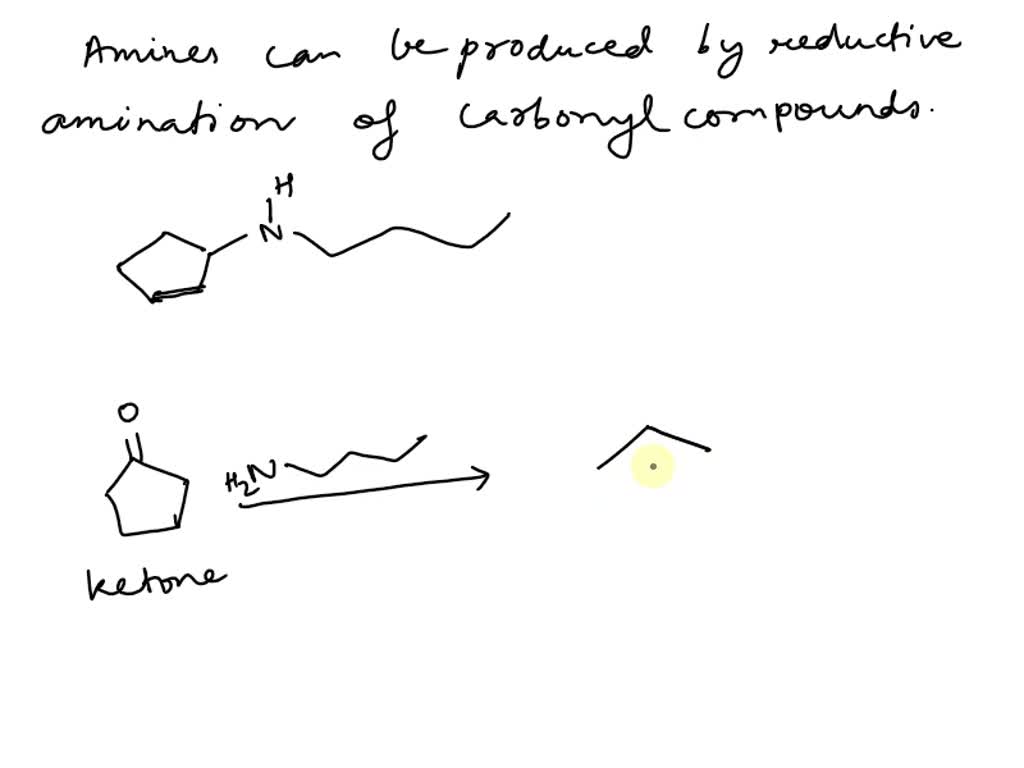 Amines can be produced by reductive
amination of carbonyl compounds.
H
N
O
H2N
ketone